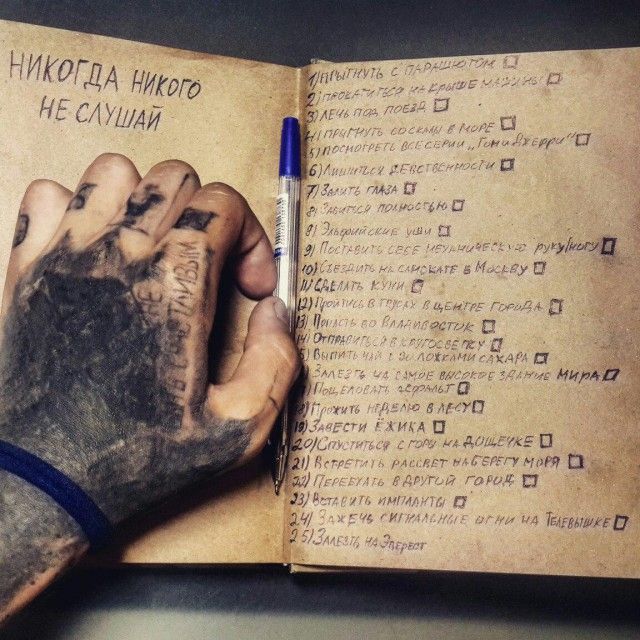 НИКОГДА НИКОГО
НЕ СЛУШАЙ
1) ПРЫГНУТЬ С ПАРАШЮТОМ
2) ПРОКАТИТЬСЯ НА КРЫШЕ МАШИНЫ
3) ЛЕЧЬ ПОД ПОЕЗД
4) ПРЫГНУТЬ СО СКАЛЫ В МОРЕ
5) ПОСМОТРЕТЬ ВСЕ СЕРИИ „ТОМ И ДЖЕРРИ"
6) ЛИШИТЬСЯ ДЕВСТВЕННОСТИ
7) ЗАЛИТЬ ГЛАЗА
8) ЗАБИТЬСЯ ПОЛНОСТЬЮ
8) ЭЛЬФИЙСКИЕ УШИ
9) ПОСТАВИТЬ СЕБЕ МЕХАНИЧЕСКУЮ РУКУ/НОГУ
10) СЪЕЗДИТЬ НА СЛИСКАТЕ В МОСКВУ
11) СДЕЛАТЬ КУНИ
12) ПРОЙТИСЬ В ТРУСАХ В ЦЕНТРЕ ГОРОДА
13) ПОПАСТЬ ВО ВЛАДИВОСТОК
14) ОТПРАВИТЬСЯ В КРУГОСВЕТКУ
15) ВЫПИТЬ ЧАЙ С 20 ЛОЖКАМИ САХАРА
ЗАЛЕЗТЬ НА САМОЕ ВЫСОКОЕ ЗДАНИЕ МИРА
ПОЦЕЛОВАТЬ АСФАЛЬТ
18) ПРОЖИТЬ НЕДЕЛЮ В ЛЕСУ
19) ЗАВЕСТИ ЁЖИКА
20) СПУСТИТЬСЯ С ГОРЫ НА ДОЩЕЧКЕ
21) ВСТРЕТИТЬ РАССВЕТ НА БЕРЕГУ МОРЯ
22) ПЕРЕЕХАТЬ В ДРУГОЙ ГОРОД
23) ВСТАВИТЬ ИМПЛАНТЫ
24) ЗАЖЕЧЬ СИГНАЛЬНЫЕ ОГНИ НА ТЕЛЕВЫШКЕ
25) ЗАЛЕЗТЬ НА ЭВЕРЕСТ